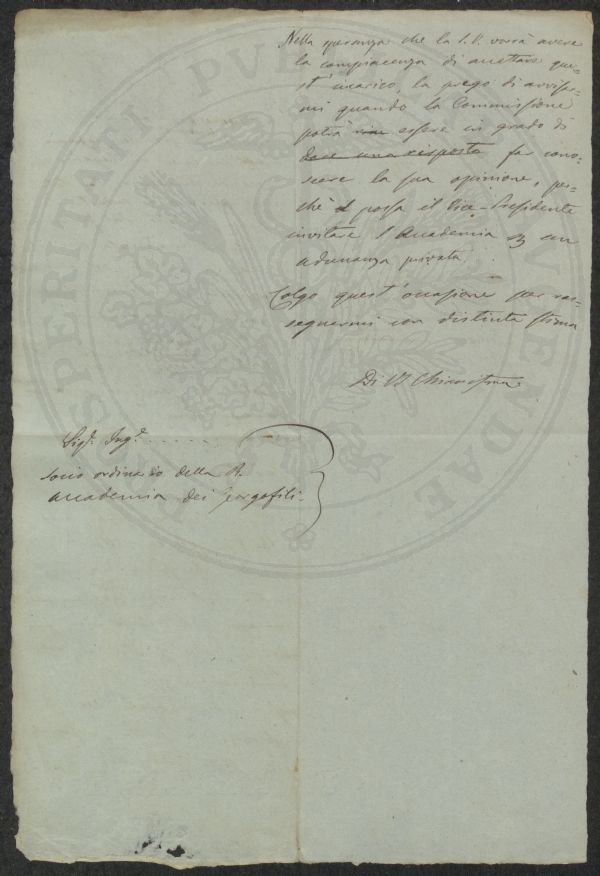 Nella speranza che la S.V. vorrà avere
la compiacenza di accettare que-
st'incarico, la prego di avvisar-
mi quando la Commissione
potrà essere in grado di
dare una risposta far cono-
scere la sua opinione, per-
chè possa il Vice-Presidente
invitare l'Accademia ad un
adunanza privata.
Colgo quest'occasione per ras-
segnarmi con distinta stima
Di VS Chiarissima
Sigr. Ingr. . . . . . . .
socio ordinario della R.
Accademia dei Georgofili.
PROSPERITATI PUBLICAE AUGENDAE